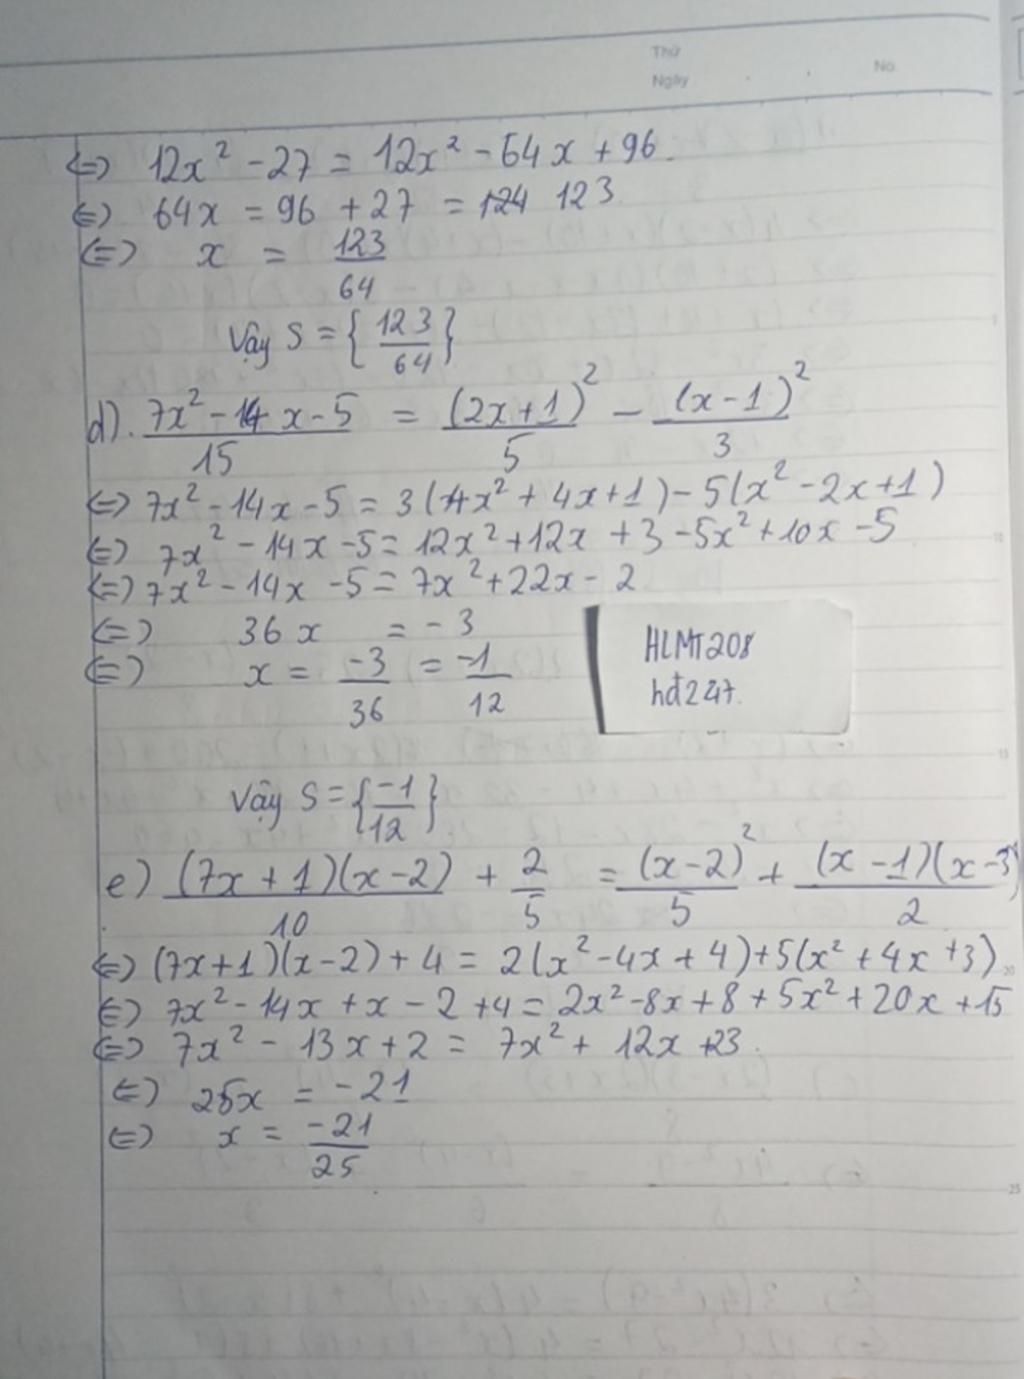 Thứ
Ngày
No
<=> 12x² - 27 = 12x² - 64x + 96.
<=> 64x = 96 + 27 = 124 123
<=> x = 123/64
Vậy S = {123/64}
d). (7x² - 14x - 5)/15 = (2x+1)²/5 - (x-1)²/3
<=> 7x² - 14x - 5 = 3(4x² + 4x + 1) - 5(x² - 2x + 1)
<=> 7x² - 14x - 5 = 12x² + 12x + 3 - 5x² + 10x - 5
<=> 7x² - 14x - 5 = 7x² + 22x - 2
<=> 36x = -3
<=> x = -3/36 = -1/12
HLMT208
hđ247.
Vậy S = {-1/12}
e) (7x + 1)(x - 2)/10 + 2/5 = (x - 2)²/5 + (x - 1)(x - 3)/2
<=> (7x+1)(x-2) + 4 = 2(x² - 4x + 4) + 5(x² + 4x + 3)
<=> 7x² - 14x + x - 2 + 4 = 2x² - 8x + 8 + 5x² + 20x + 15
<=> 7x² - 13x + 2 = 7x² + 12x + 23.
<=> 25x = -21
<=> x = -21/25